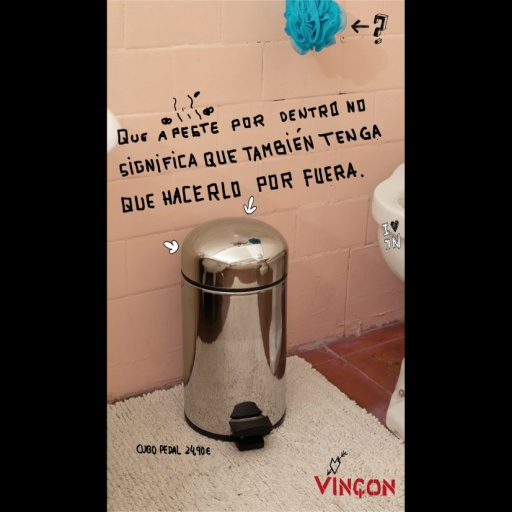 ?
QUE APESTE POR DENTRO NO
SIGNIFICA QUE TAMBIÉN TENGA
QUE HACERLO POR FUERA.
I ♥
JN
CUBO PEDAL 24,90€
VINÇON